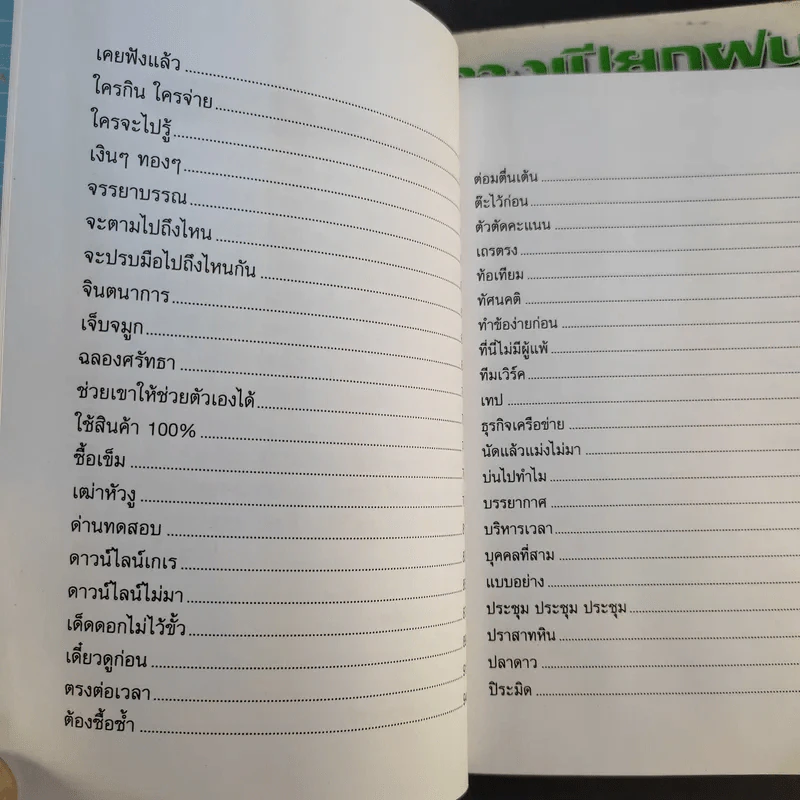 เคยฟังแล้ว
ใครกิน ใครจ่าย
ใครจะไปรู้
เงินๆ ทองๆ
จรรยาบรรณ
จะตามไปถึงไหน
จะปรบมือไปถึงไหนกัน
จินตนาการ
เจ็บจมูก
ฉลองศรัทธา
ช่วยเขาให้ช่วยตัวเองได้
ใช้สินค้า 100%
ซื้อเข็ม
เฒ่าหัวงู
ด่านทดสอบ
ดาวน์ไลน์เกเร
ดาวน์ไลน์ไม่มา
เด็ดดอกไม่ไว้ขั้ว
เดี๋ยวดูก่อน
ตรงต่อเวลา
ต้องซื้อซ้ำ
ต่อมตื่นเต้น
ต๊ะไว้ก่อน
ตัวตัดคะแนน
เถรตรง
ท้อเทียม
ทัศนคติ
ทำข้อง่ายก่อน
ที่นี่ไม่มีผู้แพ้
ทีมเวิร์ค
เทป
ธุรกิจเครือข่าย
นัดแล้วแม่งไม่มา
บ่นไปทำไม
บรรยากาศ
บริหารเวลา
บุคคลที่สาม
แบบอย่าง
ประชุม ประชุม ประชุม
ปราสาทหิน
ปลาดาว
ปิระมิด